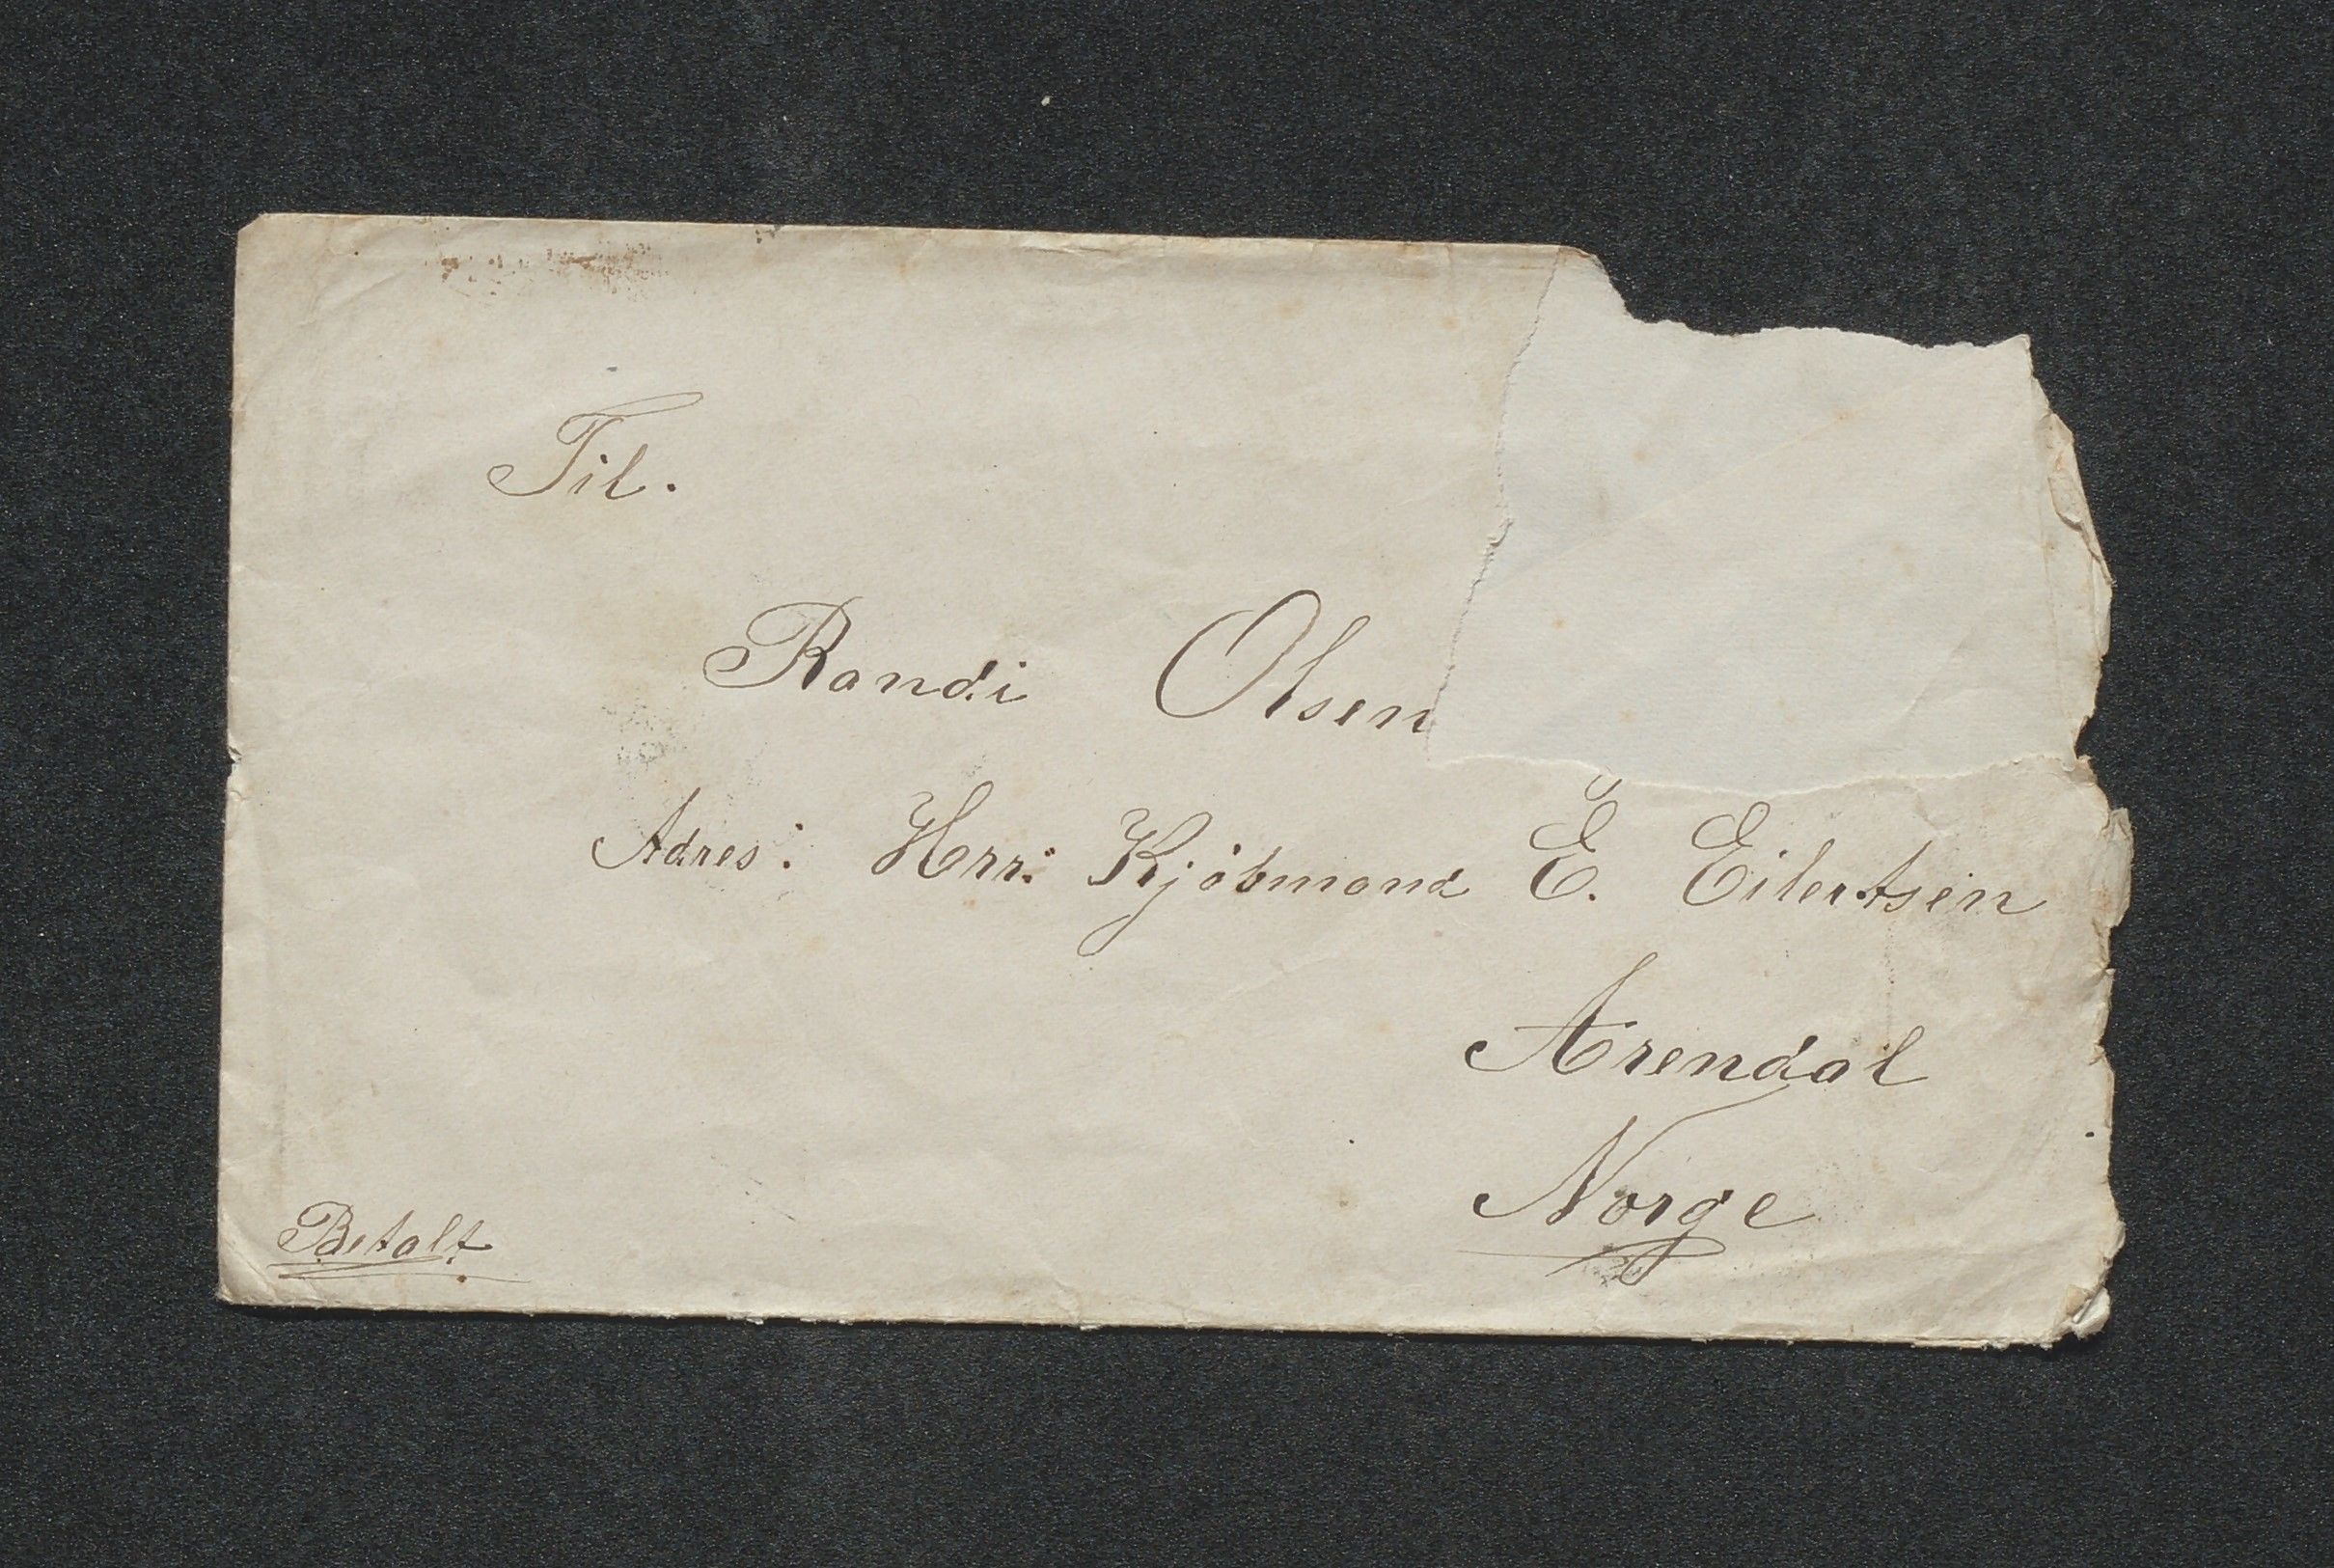 Til.
Randi Olsen
Adres: Herr: Kjöbmand E. Eilertsen
Arendal
Norge
Betalt